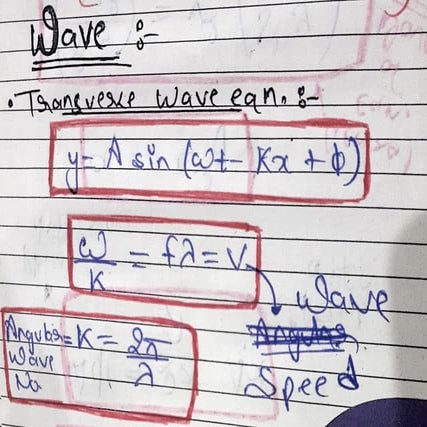 Wave :-
• Transverse wave eqn. :-
y = A sin (ωt - Kx + ϕ)
ω/K = fλ = V
Wave
Speed
Angular Wave No = K = 2π/λ